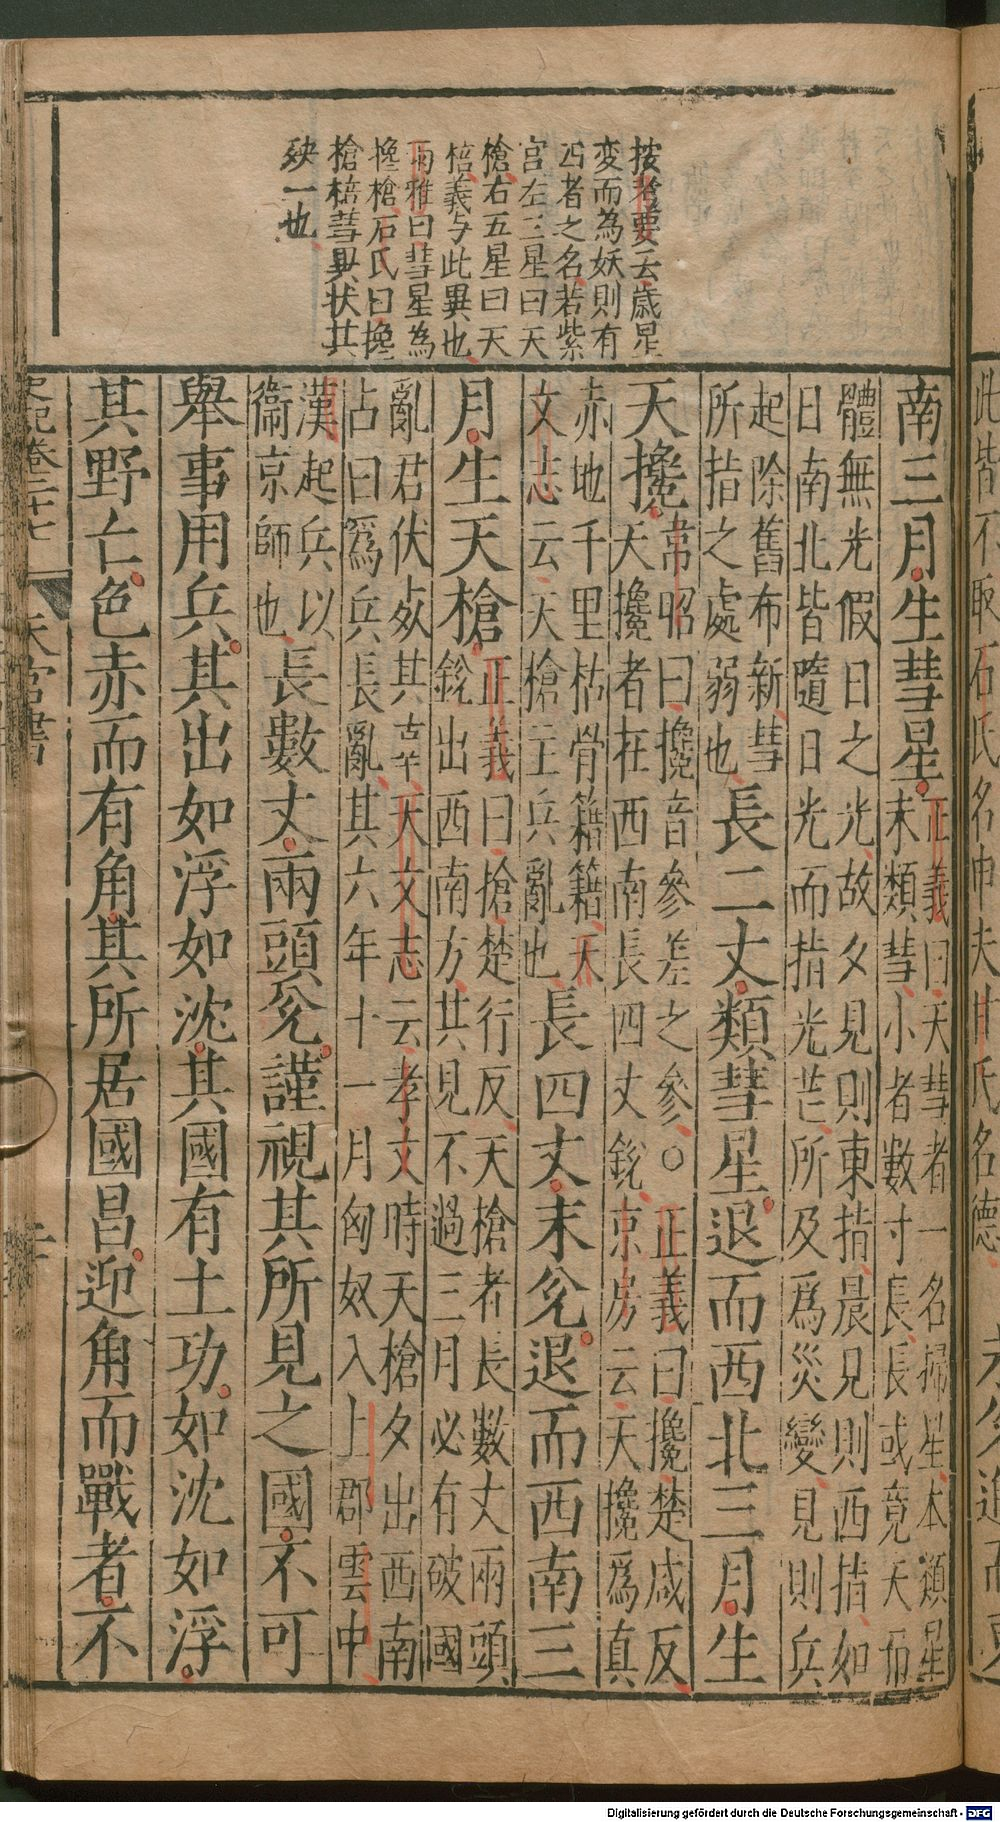 按考要云歲星
変而為妖則有
四者之名若紫
宫左三星曰天
槍右五星曰天
棓義与此異也
爾雅曰彗星為
欃槍石氏曰欃
槍棓彗異状其
殃一也
南三月生彗星正義曰天彗者一名掃星本類星
末類彗小者數寸長長或竟天而
體無光假日之光故夕見則東指晨見則西指如
日南北皆隨日光而指光芒所及爲災變見則兵
起除舊布新彗
所指之處弱也長二丈類彗星退而西北三月生
天欃韋昭曰欃音參差之參○正義曰欃楚咸反
天欃者在西南長四丈銳京房云天欃爲真
赤地千里枯骨籍籍天
文志云天槍主兵亂也長四丈末兌退而西南三
月生天槍正義曰槍楚行反天槍者長數丈兩頭
銳出西南方其見不過三月必有破國
亂君伏死其辜天文志云孝文時天槍夕出西南
占曰爲兵長亂其六年十一月匈奴入上郡雲中
漢起兵以
衞京師也長數丈兩頭兌謹視其所見之國不可
舉事用兵其出如浮如沈其國有土功如沈如浮
其野亡色赤而有角其所居國昌迎角而戰者不
史記卷二十七 天官書
此皆不取石氏名申夫甘氏名德
Digitalisierung gefördert durch die Deutsche Forschungsgemeinschaft - DFG